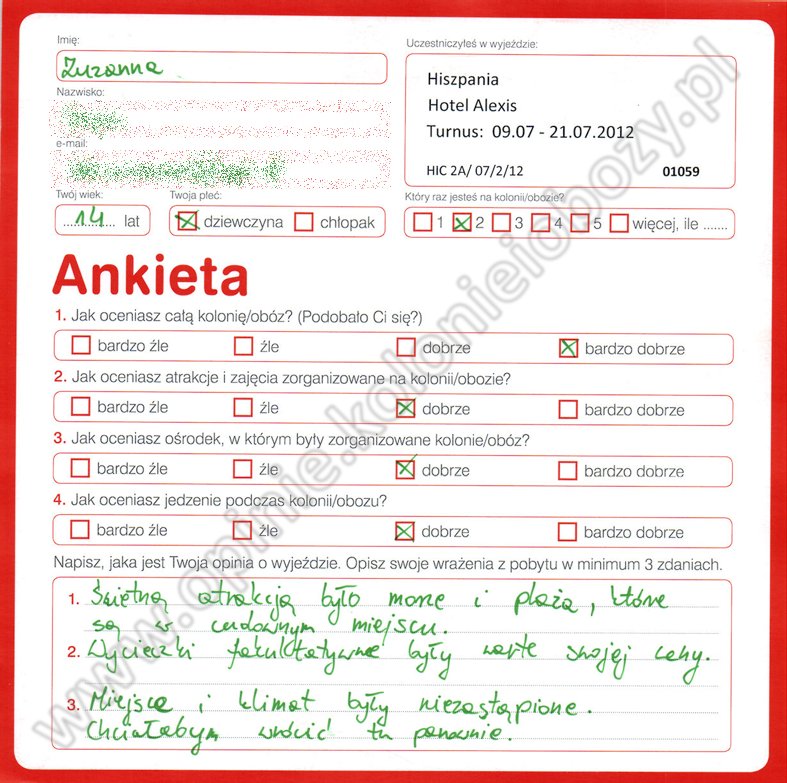 Imię:
Zuzanna
Nazwisko:
e-mail:
Twój wiek:
14 lat
Twoja płeć:
dziewczyna chłopak
Uczestniczyłeś w wyjeździe:
Hiszpania
Hotel Alexis
Turnus: 09.07 - 21.07.2012
HIC 2A/ 07/2/12 01059
Który raz jesteś na kolonii/obozie?
1 2 3 4 5 więcej, ile .......
Ankieta
1. Jak oceniasz całą kolonię/obóz? (Podobało Ci się?)
bardzo źle źle dobrze bardzo dobrze
2. Jak oceniasz atrakcje i zajęcia zorganizowane na kolonii/obozie?
bardzo źle źle dobrze bardzo dobrze
3. Jak oceniasz ośrodek, w którym były zorganizowane kolonie/obóz?
bardzo źle źle dobrze bardzo dobrze
4. Jak oceniasz jedzenie podczas kolonii/obozu?
bardzo źle źle dobrze bardzo dobrze
Napisz, jaka jest Twoja opinia o wyjeździe. Opisz swoje wrażenia z pobytu w minimum 3 zdaniach.
1. Świetną atrakcją było morze i plaża, które
są w cudownym miejscu.
2. Wycieczki fakultatywne były warte swojej ceny.
3. Miejsce i klimat były niezastąpione.
Chciałabym wrócić tu ponownie.
www.opinie.kolonieiobozy.pl